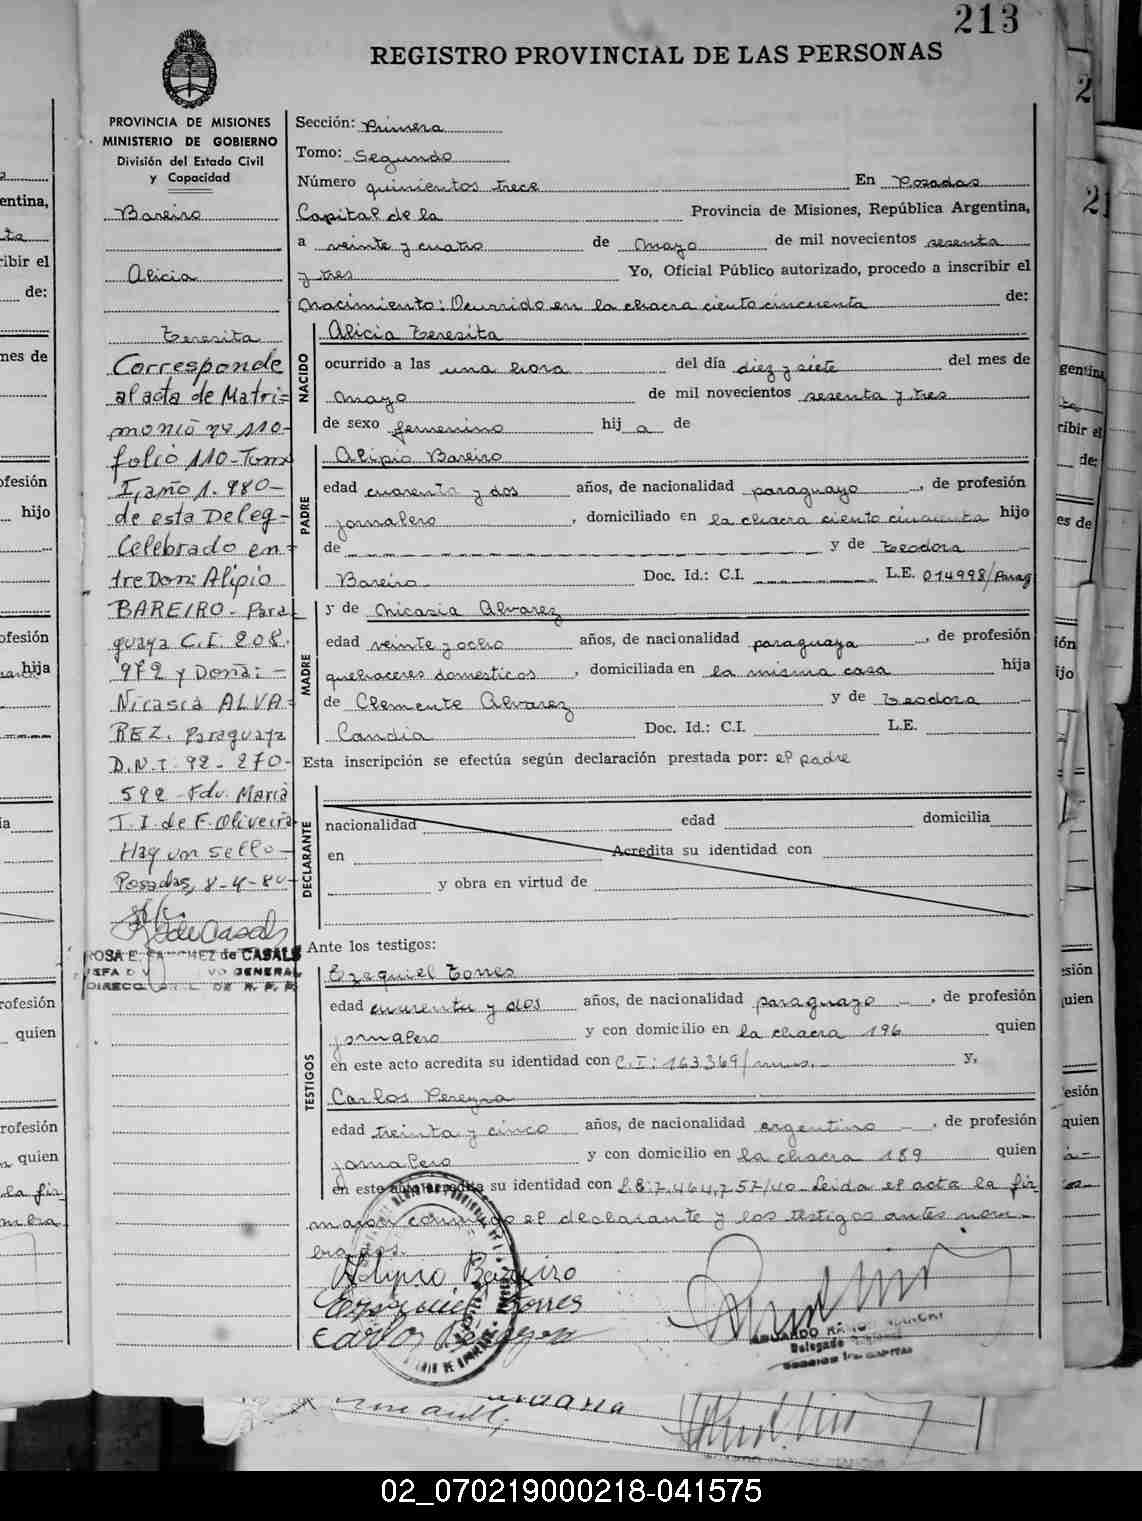 213
REGISTRO PROVINCIAL DE LAS PERSONAS
PROVINCIA DE MISIONES
MINISTERIO DE GOBIERNO
División del Estado Civil
y Capacidad
Bareiro
Alicia
Teresita
Corresponde
al acta de Matri=
monio nº 110-
folio 110-Tomo
I, año 1.980-
de esta Deleg-
Celebrado en-
tre Don: Alipio
BAREIRO- Para-
guaya C.I. 208.
972 y Doña:-
Nicasia ALVA=
REZ. Paraguaya
D.N.I. 92-270-
592-Fdo. María
T.I. de F. Oliveira
Hay un sello-
Posadas, 8-4-80-
ROSA E. SANCHEZ de CASALS
Sección: Primera
Tomo: Segundo
Número quinientos trece En Posadas
Capital de la Provincia de Misiones, República Argentina,
a veinte y cuatro de Mayo de mil novecientos sesenta
y tres Yo, Oficial Público autorizado, procedo a inscribir el
Nacimiento: Ocurrido en la chacra ciento cincuenta de:
NACIDO
Alicia Teresita
ocurrido a las una hora del día diez y siete del mes de
Mayo de mil novecientos sesenta y tres
de sexo femenino hij a de
PADRE
Alipio Bareiro
edad cuarenta y dos años, de nacionalidad paraguayo, de profesión
jornalero, domiciliado en la chacra ciento cincuenta hijo
de y de Teodora
Bareiro Doc. Id.: C.I. L.E. 014998/Parag
MADRE
y de Nicasia Alvarez
edad veinte y ocho años, de nacionalidad paraguaya, de profesión
quehaceres domesticos, domiciliada en la misma casa hija
de Clemente Alvarez y de Teodora
Candia Doc. Id.: C.I. L.E.
Esta inscripción se efectúa según declaración prestada por: el padre
DECLARANTE
nacionalidad edad domicilia
en Acredita su identidad con
y obra en virtud de
Ante los testigos:
TESTIGOS
Ezequiel Torres
edad cuarenta y dos años, de nacionalidad paraguayo -, de profesión
jornalero y con domicilio en la chacra 196 quien
en este acto acredita su identidad con C.I: 163369/mnes.- y,
Carlos Pereyra
edad treinta y cinco años, de nacionalidad argentino -, de profesión
jornalero y con domicilio en la chacra 189 quien
en este acto acredita su identidad con L.E:7.464.757/40 Leida el acta la fir
maron conmigo el declarante y los testigos antes nom-
brados.
Alipio Bareiro
Ezequiel Torres
Carlos Pereyra
Delegado
02_070219000218-041575